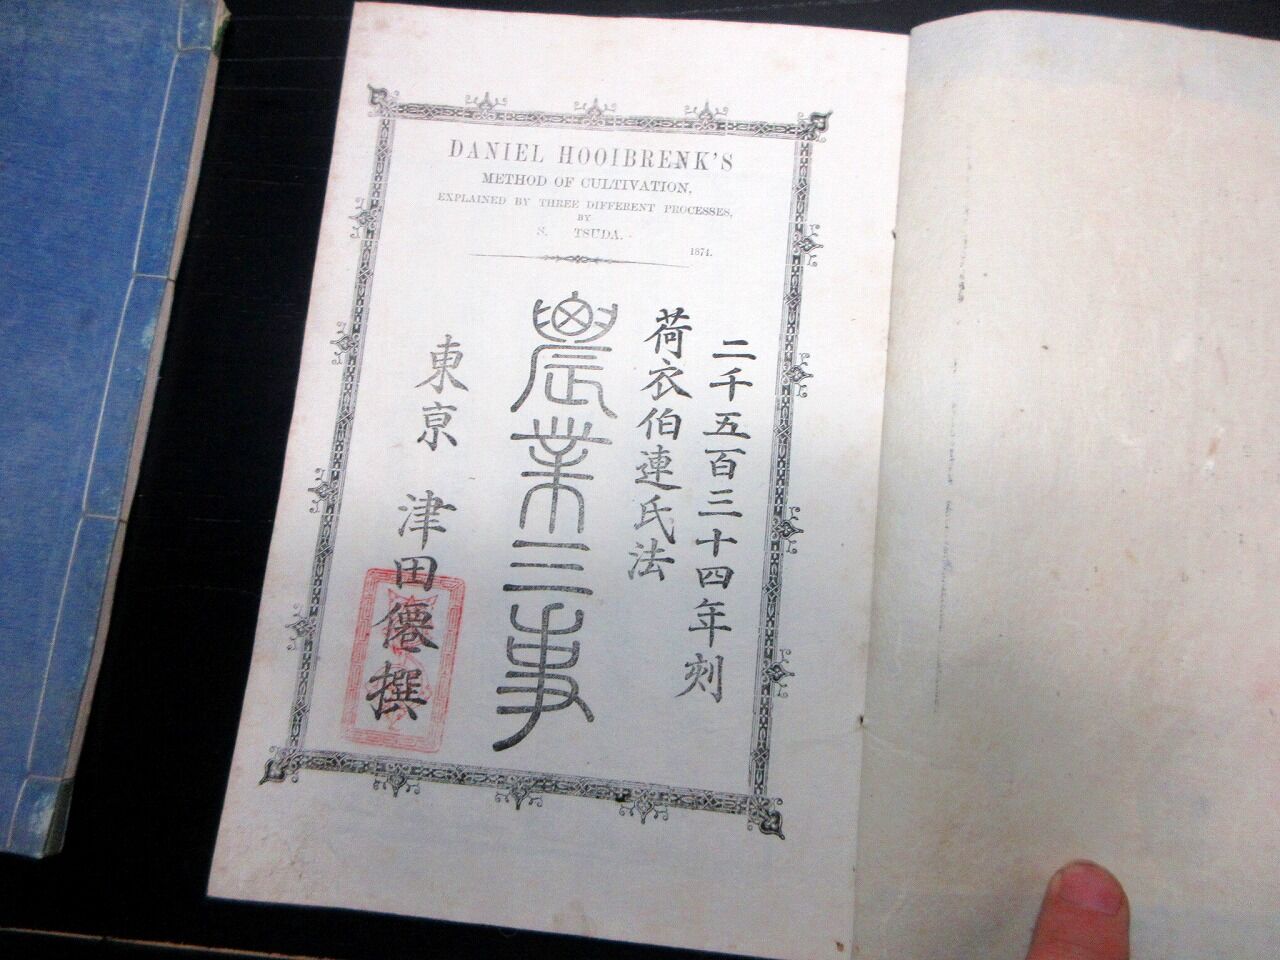 DANIEL HOOIBRENK'S
METHOD OF CULTIVATION,
EXPLAINED BY THREE DIFFERENT PROCESSES,
BY
S. TSUDA.
1874.
二千五百三十四年刻
荷衣伯連氏法
農業三事
東京 津田僊撰